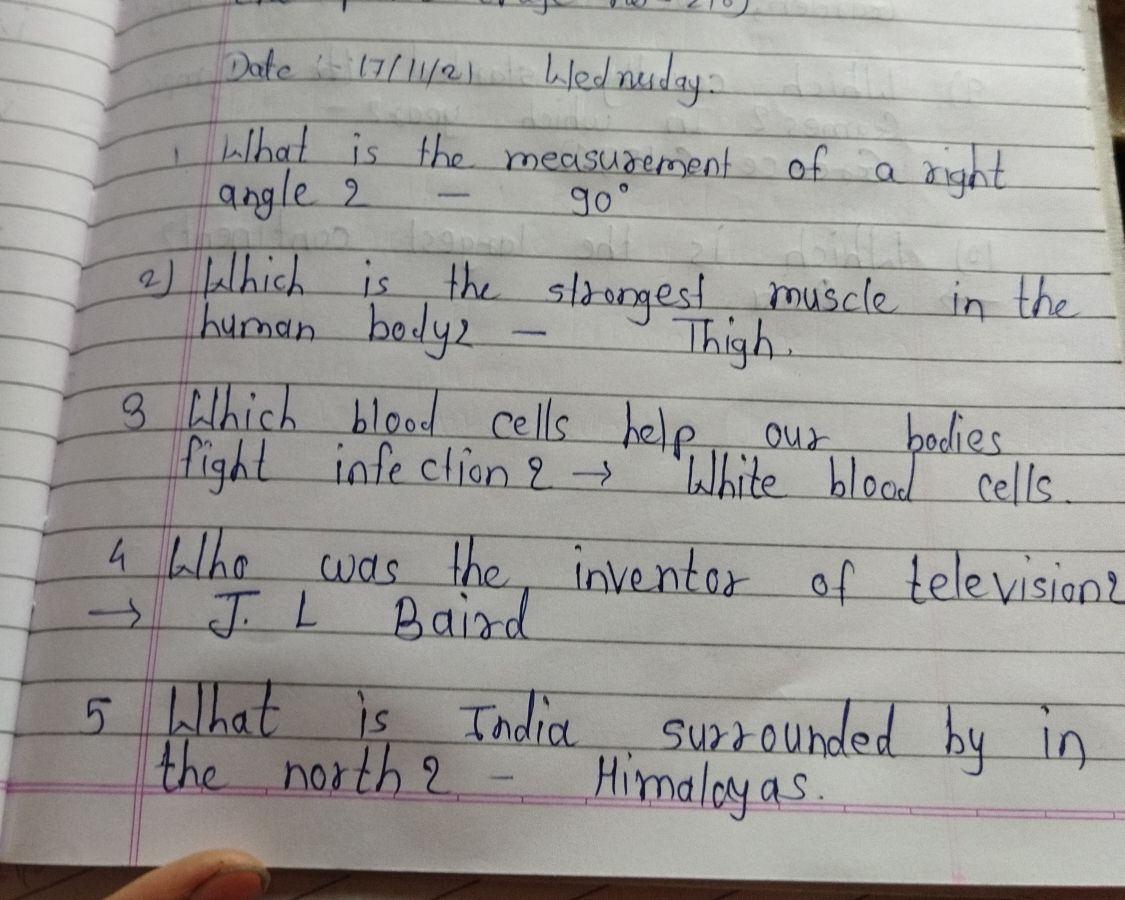 Date :- 17/11/21 Wednesday:
1 What is the measurement of a right
angle ? - 90°
2) Which is the strongest muscle in the
human body? - Thigh.
3 Which blood cells help our bodies
fight infection ? → White blood cells.
4 Who was the inventor of television?
→ J. L Baird
5 What is India surrounded by in
the north ? - Himalayas.